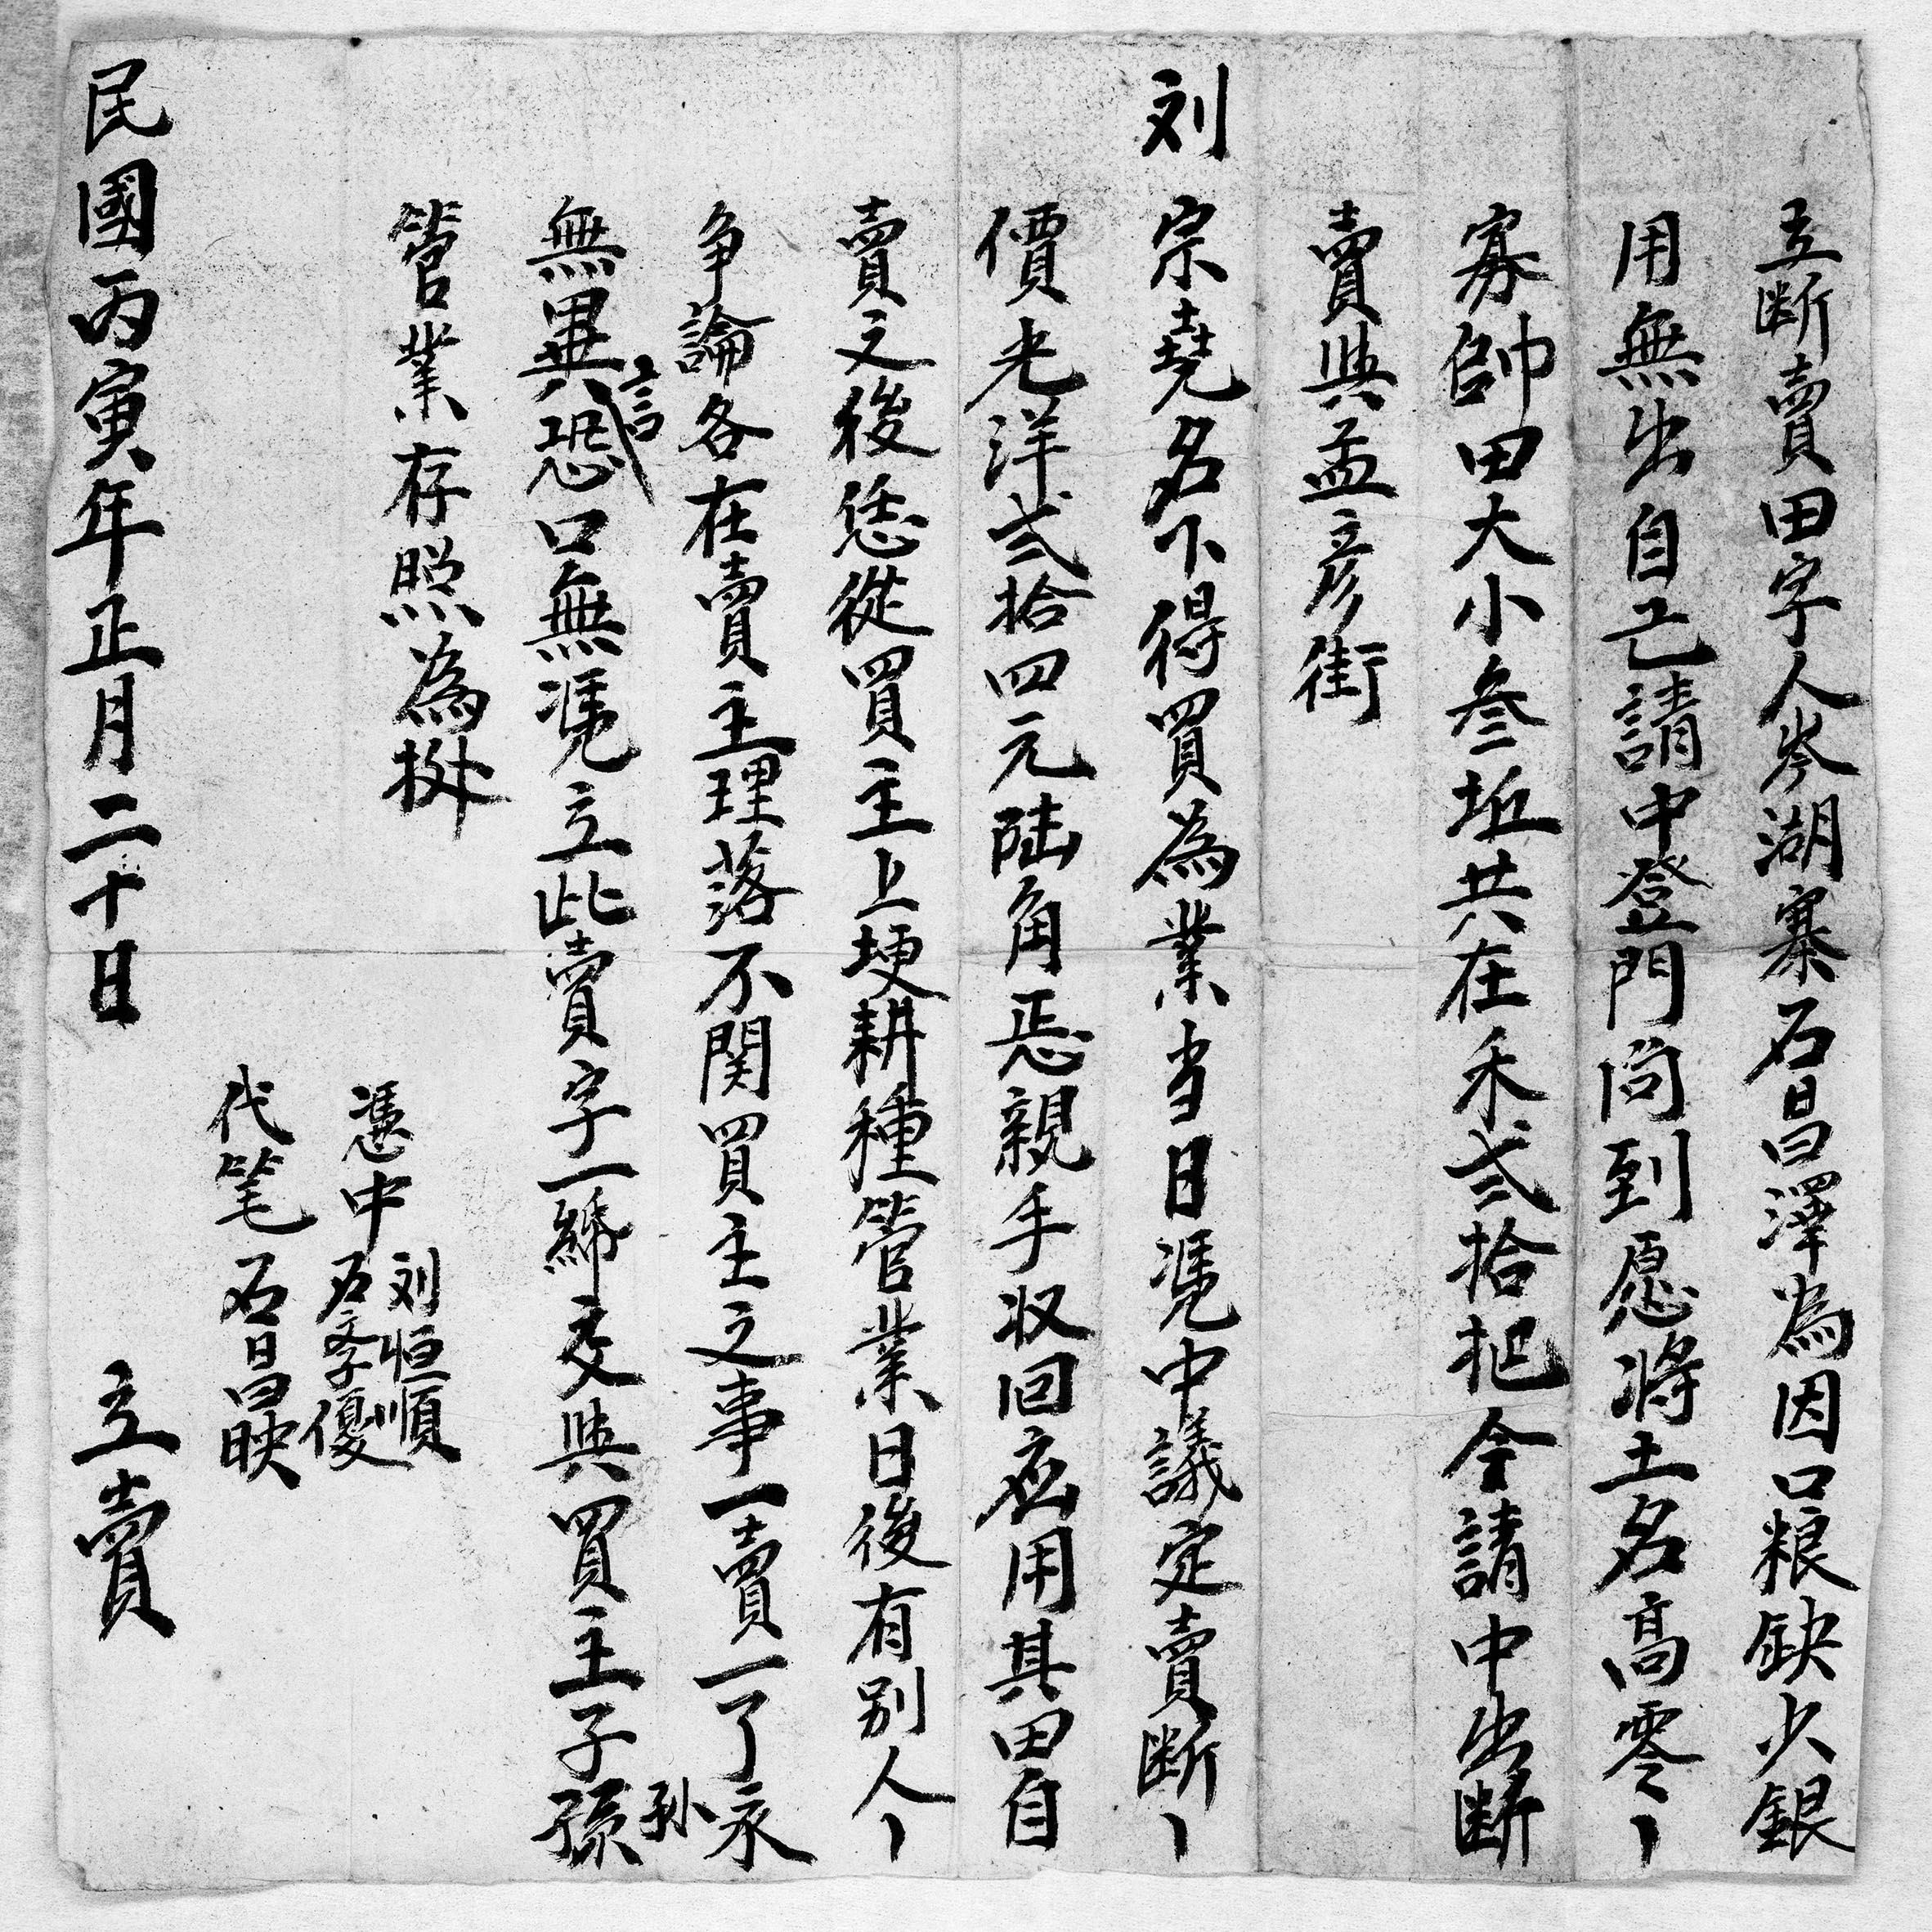 立断賣田字人岑湖寨石昌澤為因口粮缺少銀
用無出自己請中登門问到愿将土名高零
寡帥田大小叁坵共在禾弍拾把今請中出断
賣與孟彦街
刘宗堯名下得買為業当日凴中議定賣断
價光洋弍拾四元陆角恁親手収回应用其田自
賣之後恁從買主上埂耕種管業日後有别人
争論各在賣主理落不関買主之事一賣一了永
無異言恐口無凴立此賣字一紙交與買主子孫
孙
管業存照為㨿
刘恒順
憑中
石孝優
代笔石昌映
民國丙寅年正月二十日
立賣